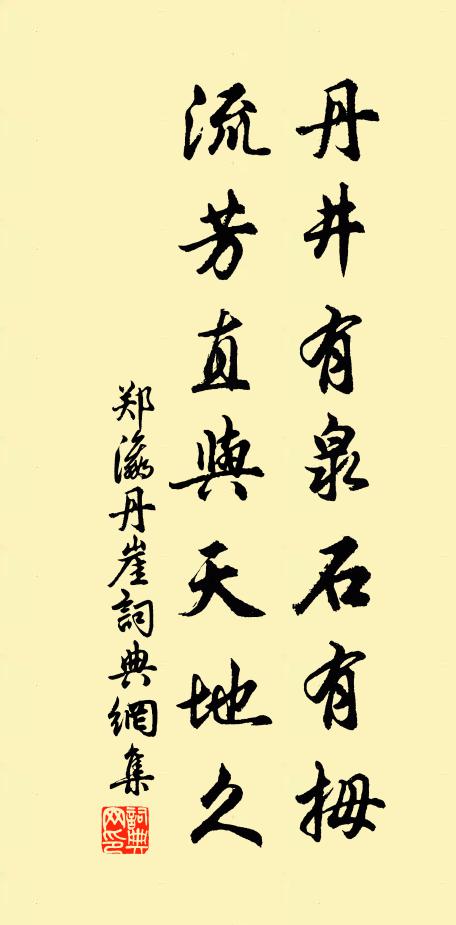 丹井有泉石有拇
流芳直與天地久
郑瀛丹崖詞典網集
詞典网印